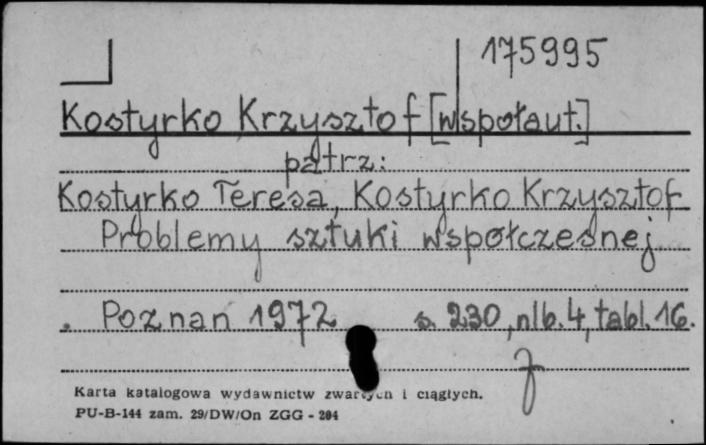 175995
Kostyrko Krzysztof [współaut.]
patrz:
Kostyrko Teresa, Kostyrko Krzysztof
Problemy sztuki współczesnej
. Poznań 1972 s. 230, nlb. 4, tabl. 16.
Karta katalogowa wydawnictw zwartych i ciągłych.
PU-B-144 zam. 29/DW/On ZGG - 204